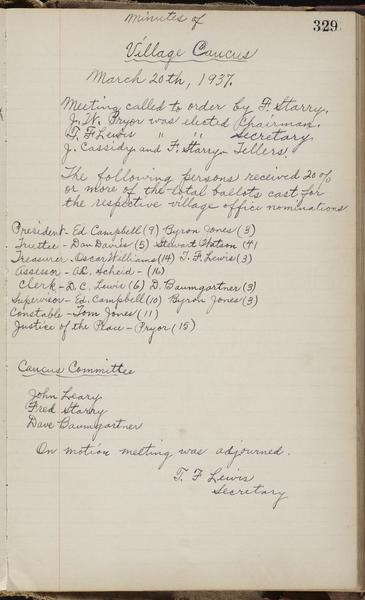 Minutes of
329
Village Caucus
March 20th, 1937.
Meeting called to order by F. Starry.
J. W. Pryor was elected Chairman.
T. F. Lewis " " Secretary
J. Cassidy and F. Starry - Tellers.
The following persons received 20%
or more of the total ballots cast for
the respective village office nominations.
President - Ed Campbell (9) Byron Jones (3)
Trustee - Dan Davies (5) Stewart Watson (4)
Treasurer - Oscar Williams (14) T. F. Lewis (3)
Assessor - A.C. Scheid - (16)
Clerk - D. C. Lewis (6) D. Baumgartner (3)
Supervisor - Ed. Campbell (10) Byron Jones (3)
Constable - Tom Jones (11)
Justice of the Peace - Pryor (15)
Caucus Committee
John Leary
Fred Starry
Dave Baumgartner
On motion meeting was adjourned.
T. F Lewis
Secretary